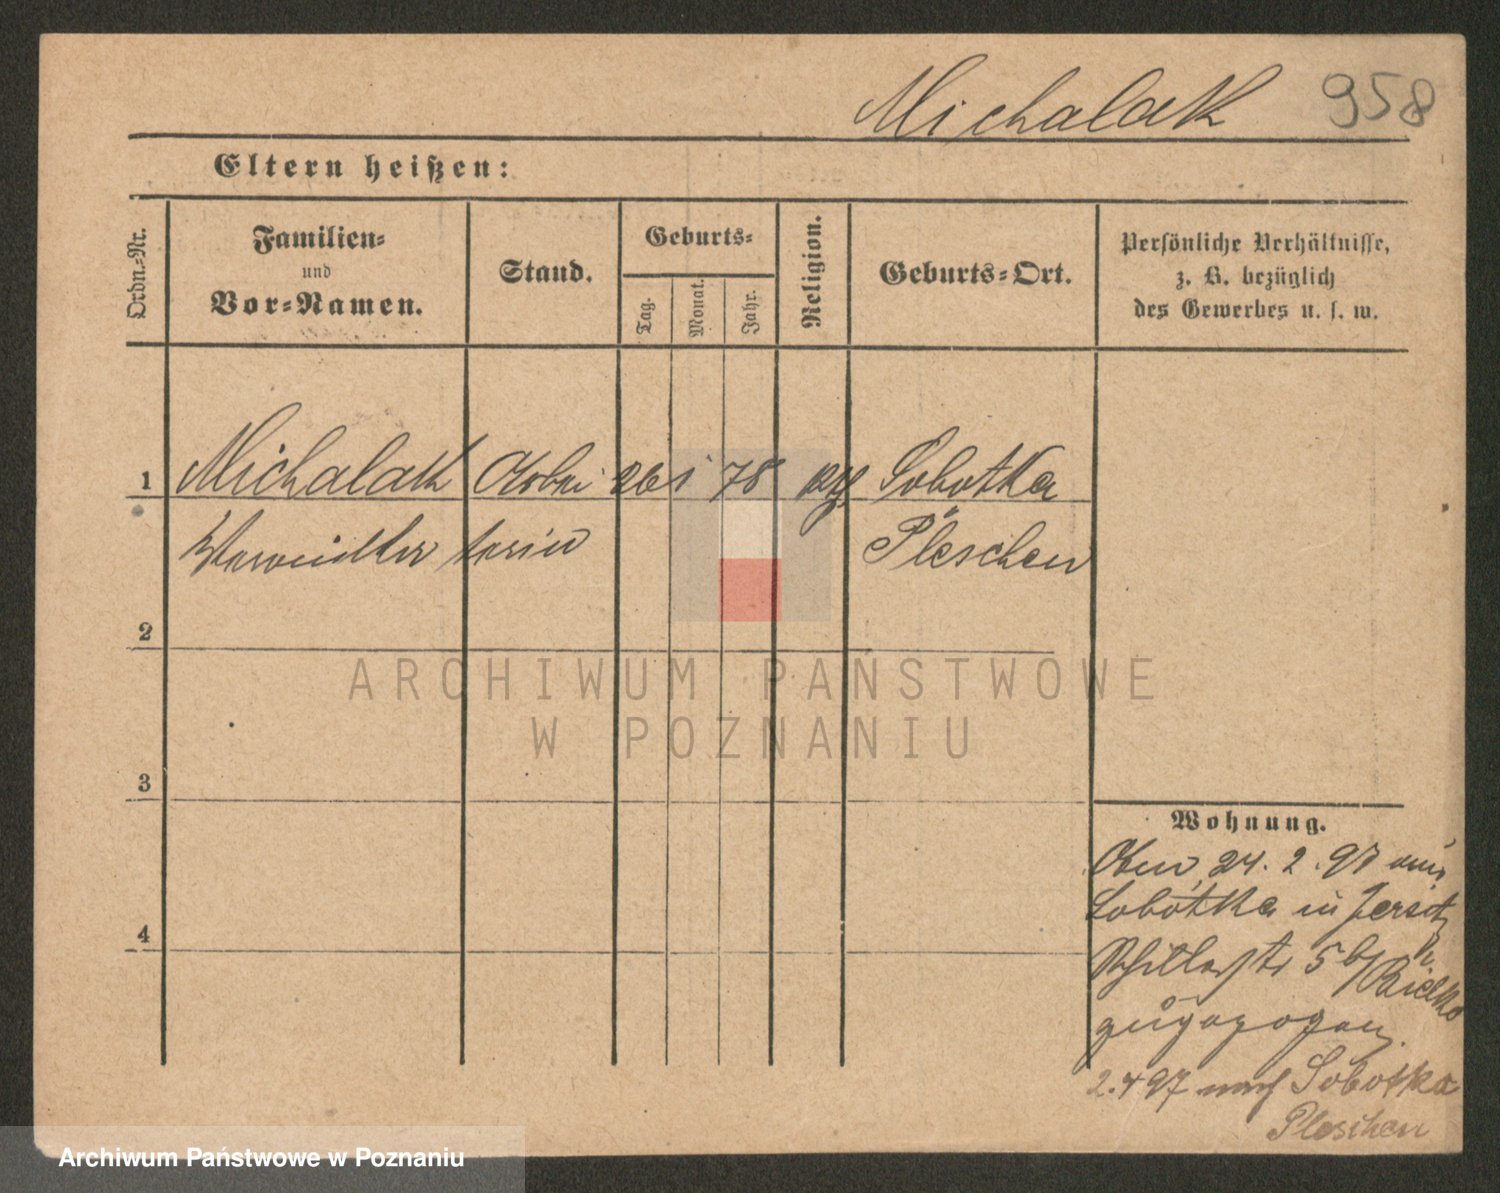 Michalak 958
Eltern heißen:
Ordn.-Nr.
Familien-
und
Vor-Namen.
Stand.
Geburts-
Tag.
Monat.
Jahr.
Religion.
Geburts-Ort.
Persönliche Verhältnisse,
z. B. bezüglich
des Gewerbes u. s. w.
1 Michalak Arbei 26 1 78 Sobotka
terin Pleschen
2
3
4
Wohnung.
24. 2. 97 aus
Sobotka in Jersitz
Schillerstr 5 b/
Bielko
zugezogen
2. 4 97 nach Sobotka
Pleschen
ARCHIWUM PAŃSTWOWE
W POZNANIU
Archiwum Państwowe w Poznaniu